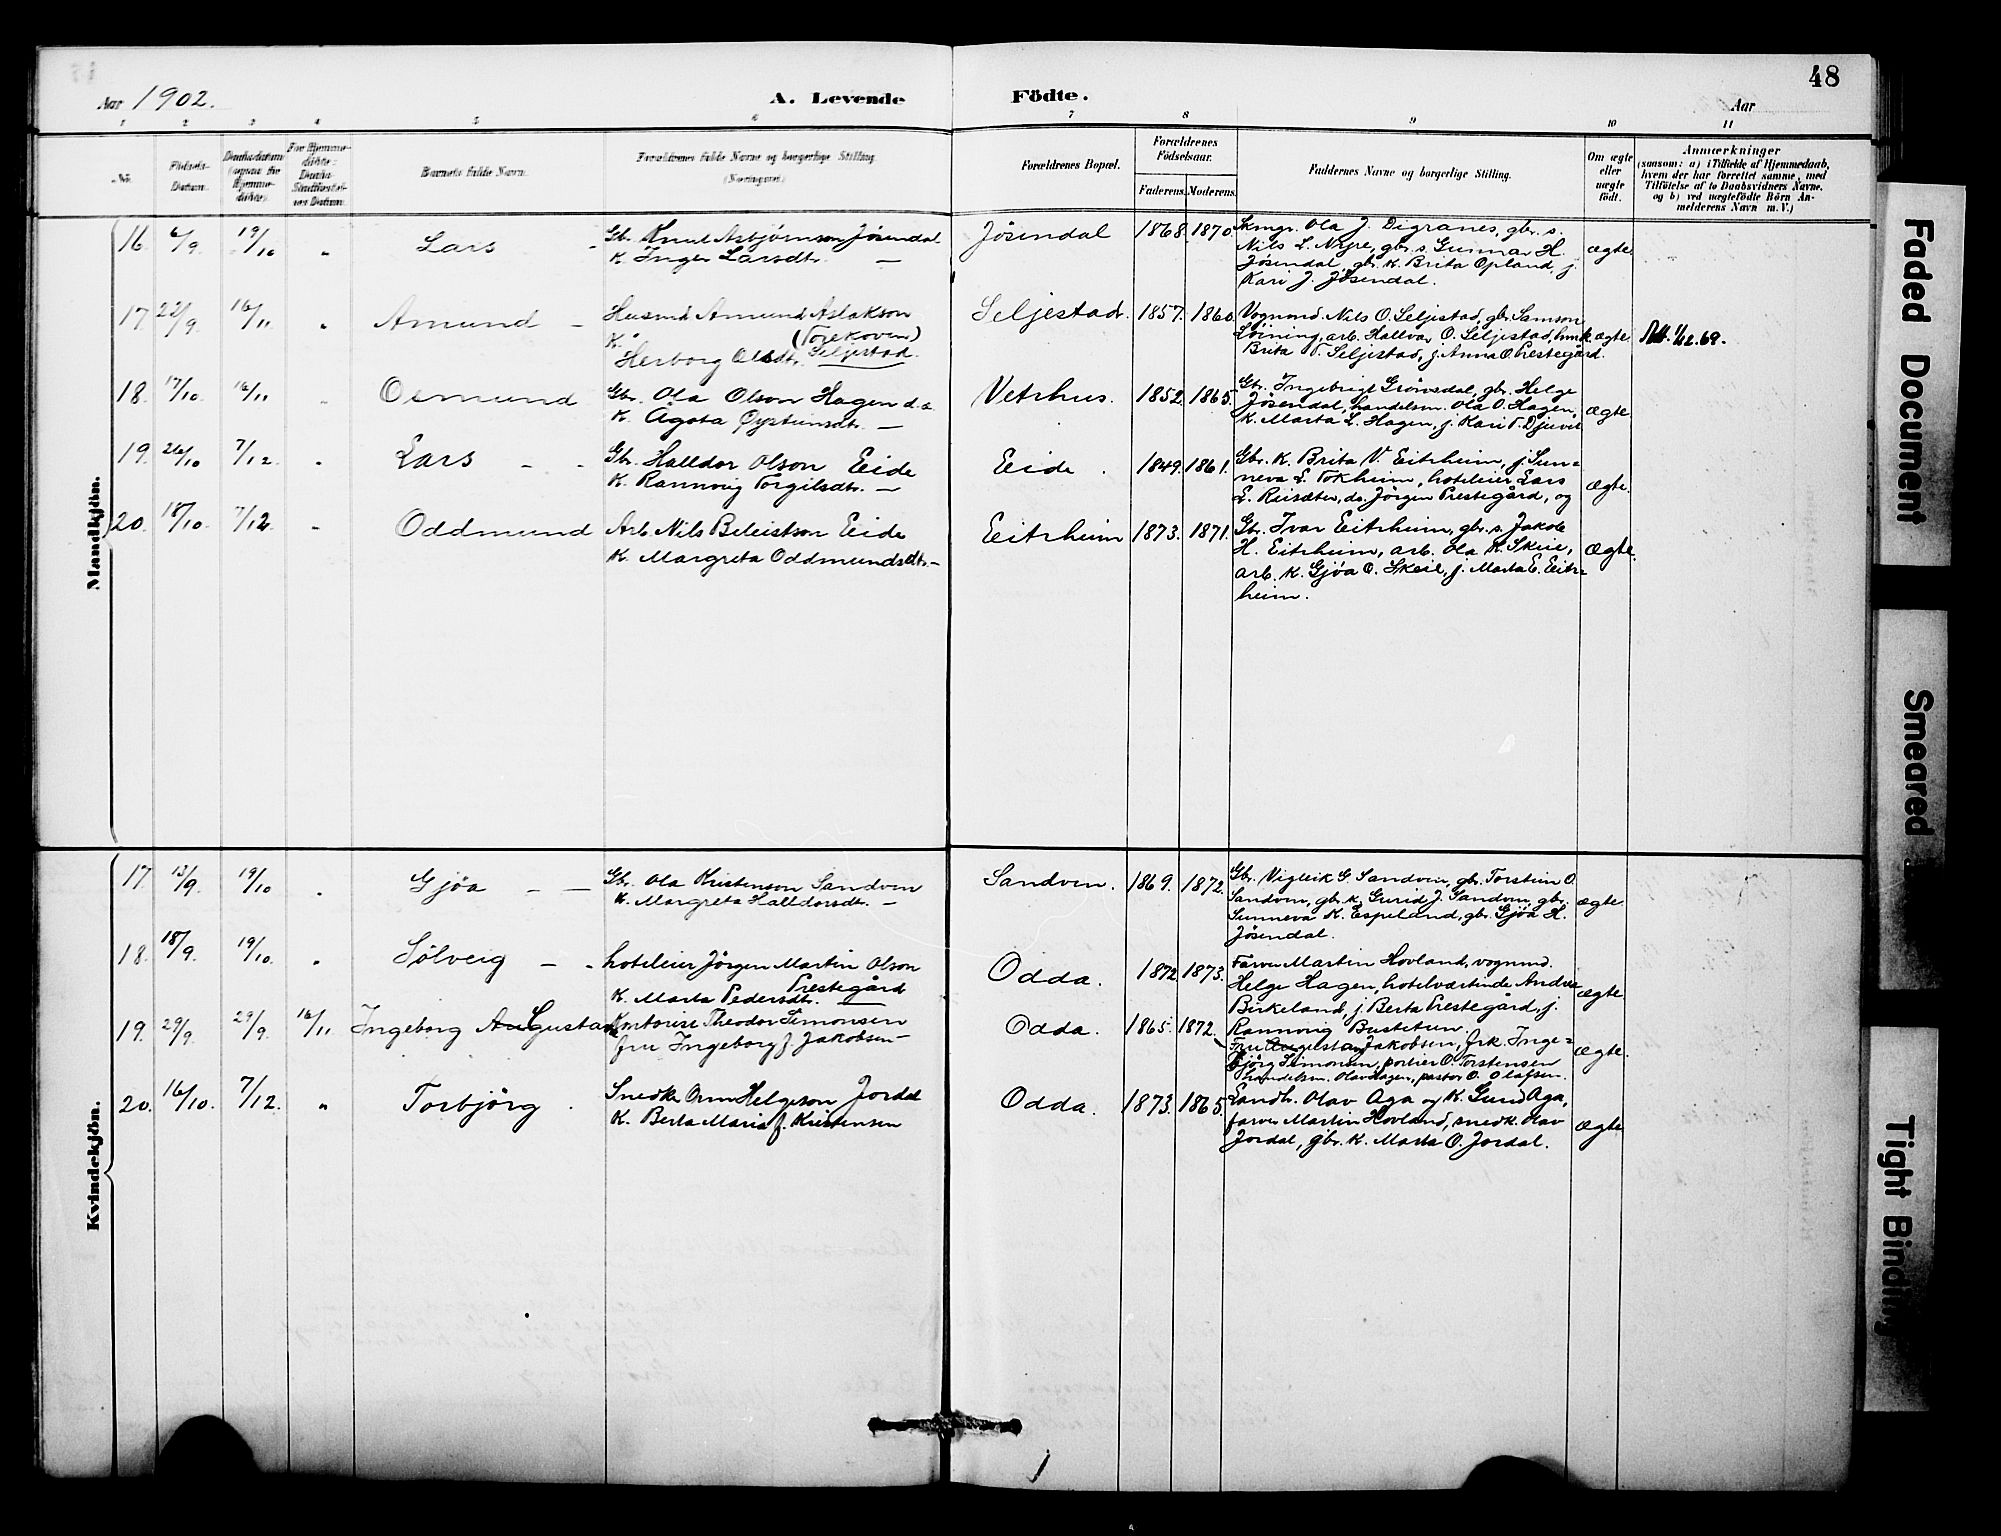 48
Aar 1902. A. Levende Födte. Aar
1 2 3 4 5 6 7 8 9 10 11
No. Födsels-Datum. Barnets fulde Navn. Forældrenes fulde Navne og borgerlige Stilling. (Næringsvei) Forældrenes Bopæl. Forældrenes Födselsaar. Faderens. Moderens. Faddernes Navne og borgerlige Stilling. Om ægte eller uægte födt. Anmærkninger
(saasom: a) i Tilfælde af Hjemmedaab,
hvem der har forrettet samme, med
Tilföielse af to Daabsvidners Navne,
og b) ved uægtefödte Börn An-
melderens Navn m. V.)
Mandkjön.
16. 6/9. 19/10 " Lars - Gb. Knut Asbjörnson Jösendal
K. Inger Larsdtr. —
Jösendal 1868. 1870. Skmgr. Ola J. Digranes, gbr. s.
Nils L. Nype, gbr. s. Gunnar H.
Jösendal, gbr. K. Brita Opland, j.
Kari J. Jösendal.
ægte.
17. 22/9. 16/11. " Amund - Husmd. Amund Aslakson
K. (Torekoven)
Herborg Olsdtr. Seljestad.
Seljestad. 1857. 1860. Vognmd. Nils O. Seljestad, gbr. Samson
Löining, arb. Hallvar O. Seljestad, husmk.
Brita T. Seljestad, j. Anna O. Prestegård.
ægte. 1/12.69.
18. 17/10. 16/11. " Osmund Gbr. Ola Olson Hagen d.e.
K. Ågota Öysteinsdtr. —
Vetrhus. 1852. 1865. Gbr. Ingebrigt Grönsdal, gbr. Helge
Jösendal, handelsm. Ola O. Hagen,
K. Marta L. Hagen, j. Kari T. Djuvik
ægte
19. 26/10 7/12. " Lars - - Gbr. Halldor Olson Eide
K. Rannvig Torgilsdtr. —
Eide. 1849. 1861. Gbr. K. Brita V. Eitrheim, j. Sun=
neva L. Tokheim, hoteleier Lars
L. Reisæter, do. Jörgen Prestegård, og
ægte.
20. 18/10. 7/12. " Oddmund Arb. Nils Beleistson Eide
K. Margreta Oddmundsdtr. —
Eitrheim 1873. 1871. Gbr. Ivar Eitrheim, gbr. s. Jakob
H. Eitrheim, arb. Ola K. Skeie,
arb. K. Gjöa O. Skeie, j. Marta E. Eitr=
heim.
ægte.
Kvindekjön.
17. 13/9. 19/10 " Gjöa - — Gbr. Ola Kristenson Sandven
K. Margreta Halldorsdtr. —
Sandven. 1869. 1872. Gbr. Vigleik G. Sandven, gbr. Torstein O.
Sandven, gbr. K. Gurid J. Sandven, gbr.
Sunneva K. Espeland, gbr. Gjöa H.
Jösendal.
ægte.
18. 18/9. 19/10. " Sölveig - - hoteleier Jörgen Martin Olson
Prestegård
K. Marta Pedersdtr. —
Odda. 1872 1873. Farver Martin Hovland, vognmd.
Helge Hagen, hotelværtinde Andrea
Birkeland, j. Berta Prestegård, j.
Rannvig Bustetun.
ægte
19. 29/9. 29/9. 16/11. Ingeborg Augusta Kontorist Theodor Simonsen
fru Ingeborg f. Jakobsen —
Odda. 1865. 1872. Fru Augusta Jakobsen, frk. Inge=
björg Simonsen, portier O. Torstensen
handelsm. Olav Hagen, pastor O. Olafsen.
ægte.
20. 16/10. 7/12. " Torbjörg. Snedk. Orm Helgeson Jordal
K. Berta Maria f. Kristensen
Odda. 1873. 1865. Landh. Olav Aga og K. Gurid Aga,
farver Martin Hovland, snedk. Olav
Jordal, gbr. K. Marta O. Jordal.
ægte
Faded Document
Smeared
Tight Binding